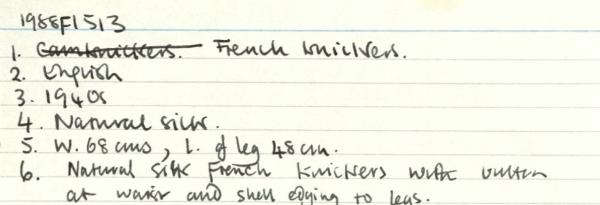 1988F1513
1. Camknickers. French knickers.
2. English
3. 1940s
4. Natural silk.
5. W. 68 cms, l. of leg 48 cm.
6. Natural silk French knickers with button
at waist and shell edging to legs.